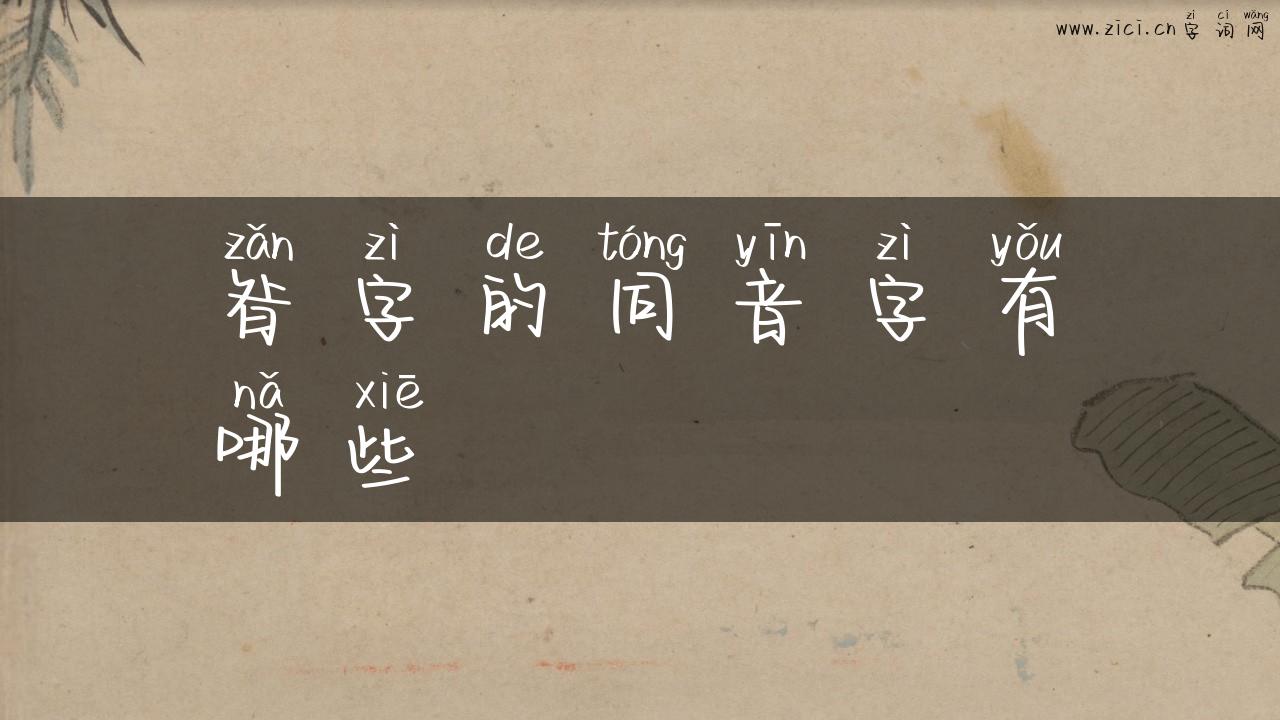 zì cí wǎng
www.zici.cn 字 词 网
zǎn zì de tóng yīn zì yǒu
昝 字 的 同 音 字 有
nǎ xiē
哪 些